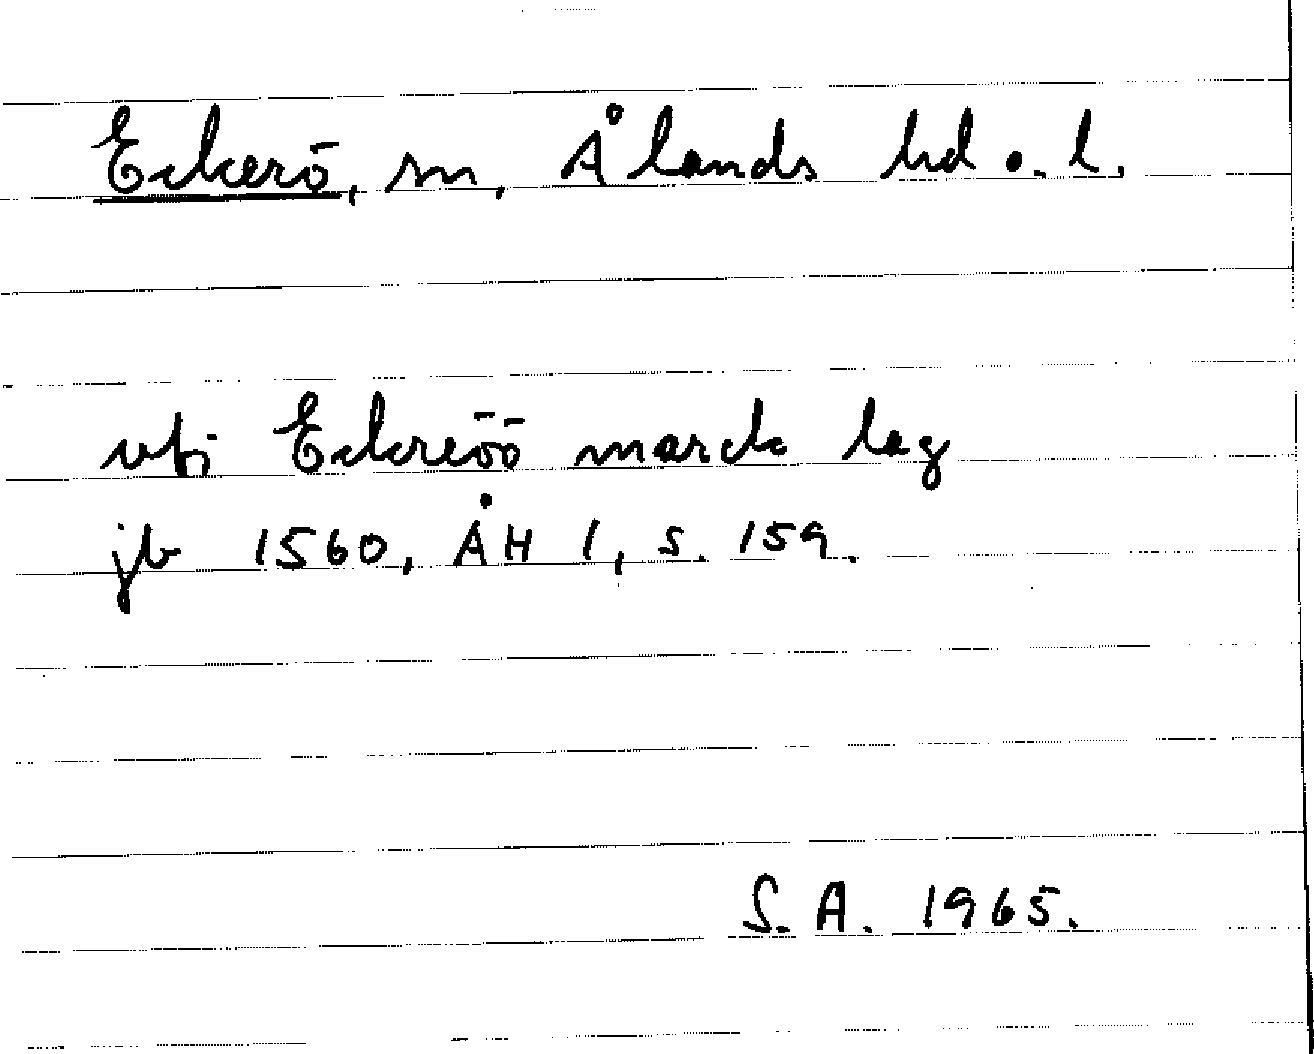 Eckerö, sn, Ålands hd o. l.
vti Eckreöö marck lag
jb 1560, ÅH 1, s. 159.
S. A. 1965.